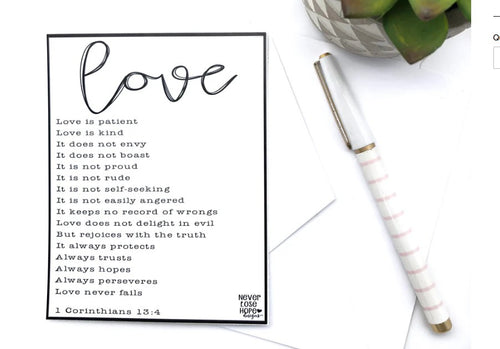 love
Love is patient
Love is kind
It does not envy
It does not boast
It is not proud
It is not rude
It is not self-seeking
It is not easily angered
It keeps no record of wrongs
Love does not delight in evil
But rejoices with the truth
It always protects
Always trusts
Always hopes
Always perseveres
Love never fails
1 Corinthians 13:4
Never
lose
Hope
designs
Q